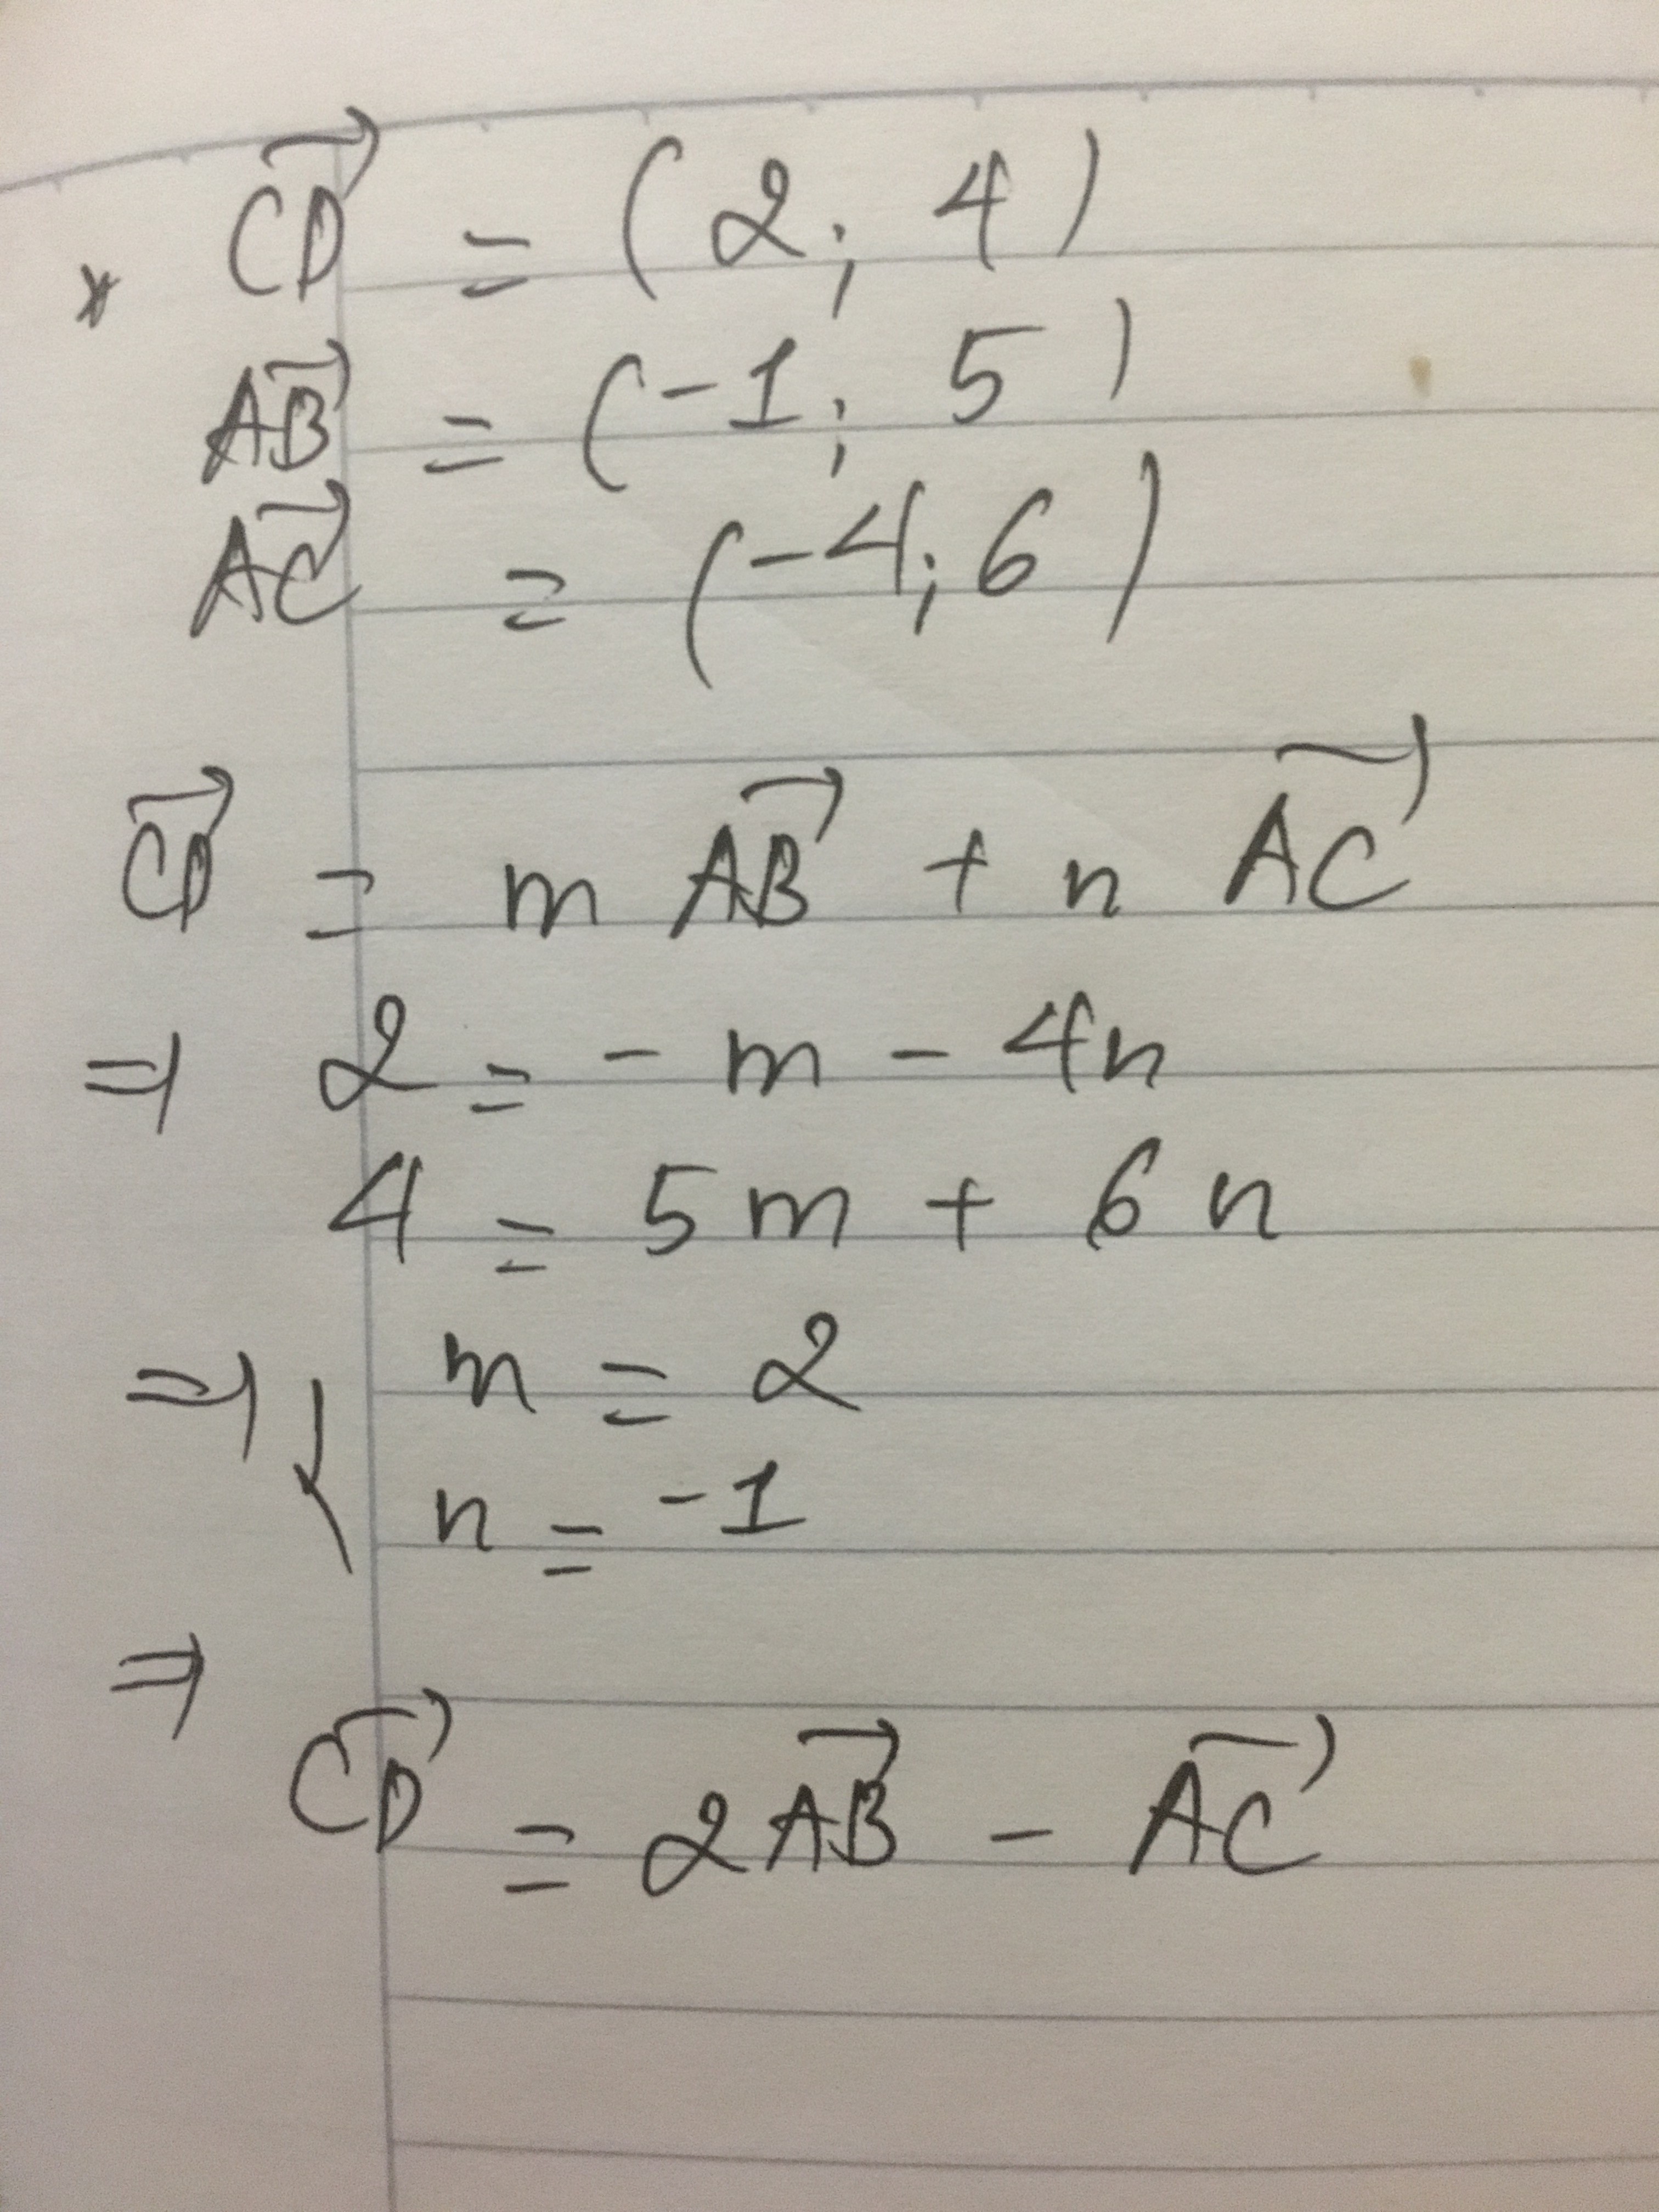 * $\overrightarrow{CD} = (2; 4)$
$\overrightarrow{AB} = (-1; 5)$
$\overrightarrow{AC} = (-4; 6)$
$\overrightarrow{CD} = m \overrightarrow{AB} + n \overrightarrow{AC}$
⇒ 2 = - m - 4n
4 = 5m + 6n
⇒ { m = 2
n = -1
⇒
$\overrightarrow{CD} = 2\overrightarrow{AB} - \overrightarrow{AC}$